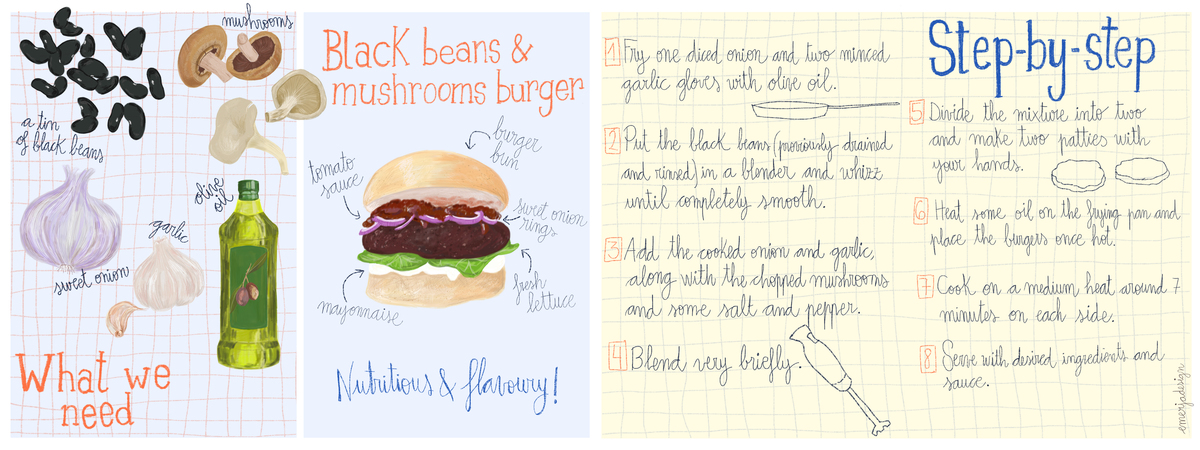 mushrooms
a tin
of black beans
olive
oil
garlic
sweet onion
What we
need
Black beans &
mushrooms burger
burger
bun
tomato
sauce
sweet onion
rings
fresh
lettuce
mayonnaise
Nutritious & flavoury!
Step-by-step
1 Fry one diced onion and two minced
garlic gloves with olive oil.
2 Put the black beans (previously drained
and rinsed) in a blender and whizz
until completely smooth.
3 Add the cooked onion and garlic,
along with the chopped mushrooms
and some salt and pepper.
4 Blend very briefly.
5 Divide the mixture into two
and make two patties with
your hands.
6 Heat some oil on the frying pan and
place the burgers once hot.
7 Cook on a medium heat around 7
minutes on each side.
8 Serve with desired ingredients and
sauce.
emerjadesign